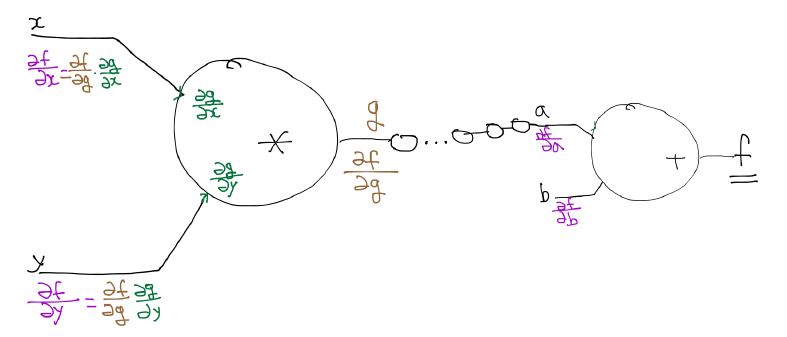 x
∂f/∂x = ∂f/∂g · ∂g/∂x
∂g/∂x
*
∂g/∂y
y
∂f/∂y = ∂f/∂g ∂g/∂y
g
∂f/∂g
...
a
∂f/∂a
b
∂f/∂b
+
f